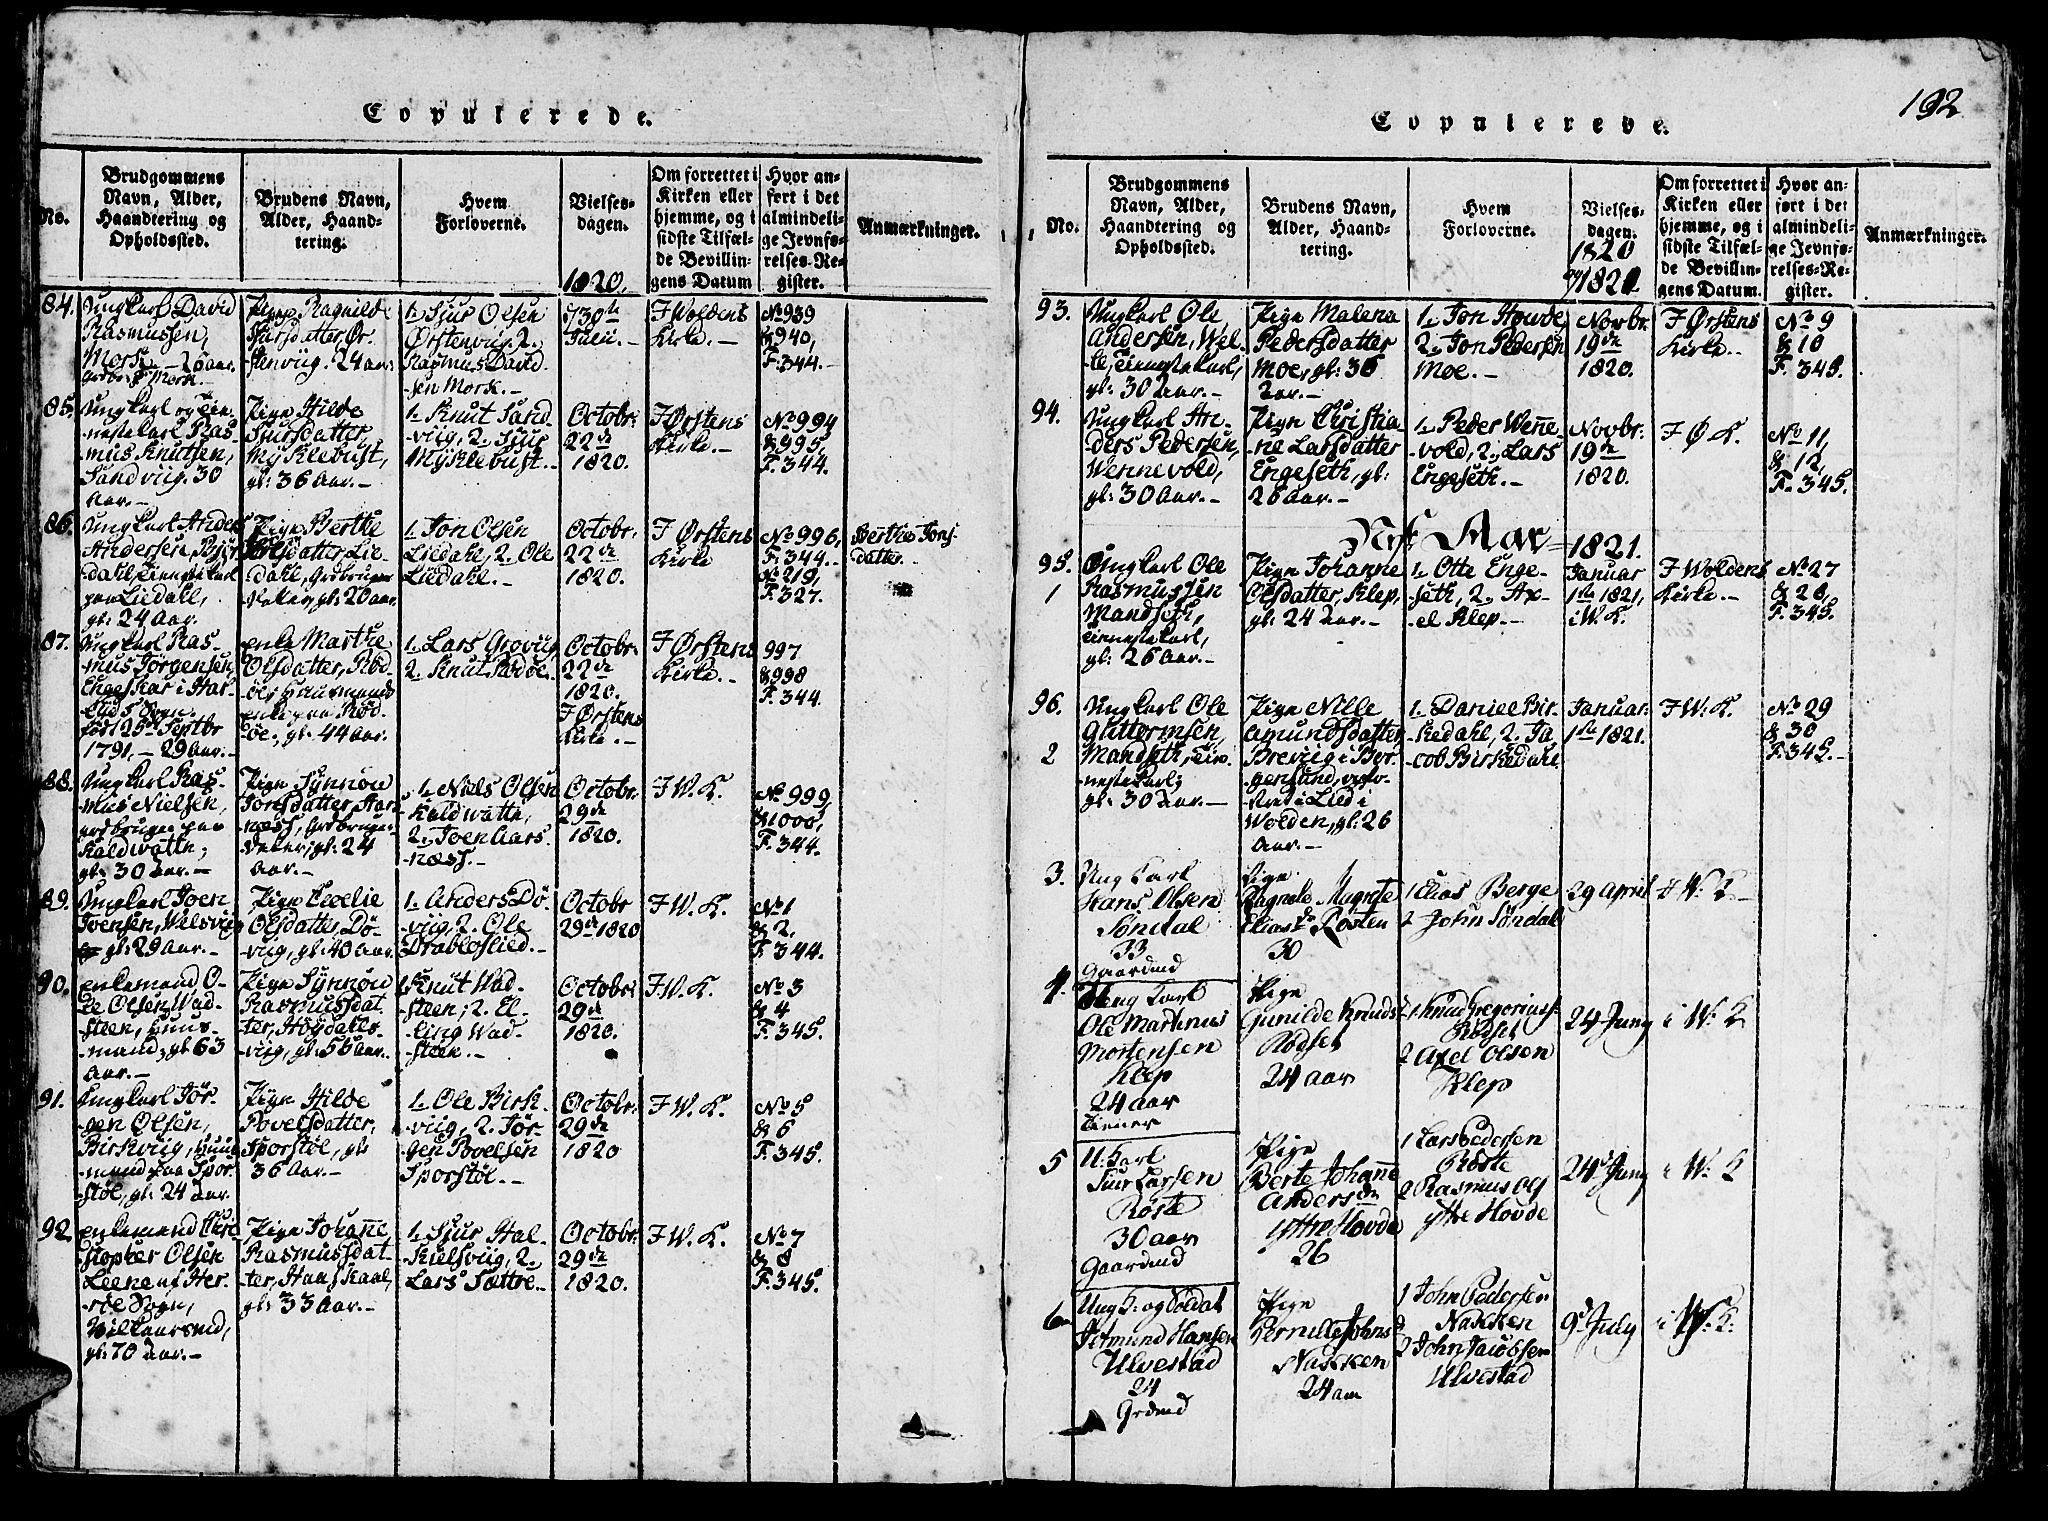 Copulerede.
No.
Brudgommens
Navn, Alder,
Haandtering og
Opholdssted.
Brudens Navn,
Alder, Haand-
tering.
Hvem
Forloverne.
Vielses-
dagen.
1820.
Om forrettet i
Kirken eller
hjemme, og i
sidste Tilfæl-
de Bevillin-
gens Datum
Hvor an-
ført i det
almindeli-
ge Jevnfø-
relses-Re-
gister.
Anmærkninger.
84.
Ungkarl David
Rasmussen,
Mork - 26 aar.
Pige Ragnilde
Ør-
stenviig. 24 aar
1. Sjur Olsen
Ørstenviig. 2.
Rasmus David
sen Mork. -
30te
I Woldens
Kirke. -
No 939
& 940,
F. 344. -
85.
Ungkarl og Tie-
nestekarl Ras-
mus Knutsen,
Sandviig. 30
Aar. -
Pige Hilde
Sjursdatter,
Myklebust,
gl: 36 Aar. -
1. Knut Sand-
viig, 2. Sjur
Myklebust. -
Octobr:
22de
1820.
I Ørstens
Kirke. -
No 994
& 995,
F. 344.
86.
Ungkarl Anders
Andersen, Bjør-
dahl, Tienestekarl
paa Liedahl,
gl: 24 Aar.
Pige Berthe
Olsdatter, Lie-
dahl,
gl: 20 aar.
1. Jon Olsen
Liedahl, 2. Ole
Liedahl. -
Octobr.
22de
1820.
I Ørstens
Kirke
No 996,
F. 344. -
No 219,
F. 327.
Berthe Jons-
datter.
87.
Ungkarl Ras-
mus Jørgensen,
Engeskar i Har-
eids Sogn.
fød 25de Septbr
1791, - 29 Aar. -
enke Marthe
Olsdatter, Rød-
øe, Huusmands
enke paa Rød-
øe, gl: 44 aar.
1. Lars Grøviig,
2. Knut Rødøe.
Octobr:
22de
1820.
I Ørstens
Kirke. -
I Ørstens
Kirke. -
997
& 998
F. 344.
88.
Ungkarl Ras-
mus Nielsen,
Kaldvatte,
gl: 30 Aar. -
Pige Synnøve
Jonsdatter, Aar-
næss,
gl: 24
aar. -
1. Niels Olsen
Kaldwatte,
2. Joen Aars-
næss. -
Octobr.
29de
1820.
I W. K.
No 999,
& 1000,
F. 344.
89.
Ungkarl Joen
Joensen, Welsviig
gl: 29 Aar. -
Pige Cecelie
Olsdatter, Dö-
viig, gl: 40 aar.
1. Anders Dö-
viig, 2. Ole
Drabløslied. -
Octobr
29de 1820
I W. K.
No 1
& 2.
F. 344.
90.
enkemand O-
le Olsen Wad-
steen, Huus-
mand, gl 63
Aar. -
Pige Synnøve
Rasmusdat-
ter, Høydahls-
viig, gl: 56 aar.
1. Knut Wad-
steen, 2. El-
ling Wad-
steen. -
Octobr:
29de
1820.
I W. K.
No 3
& 4
F. 345.
91.
Ungkarl Jör-
gen Olsen,
Birkviig, Huus-
mand paa Spor-
støl, gl: 24 aar.
Pige Hilde
Povelsdatter,
Sporstøl, gl:
36 Aar. -
1. Ole Birk-
viig, 2. Jör-
gen Povelsen
Sporstøl. -
Octobr:
29de
1820
I W. K.
No 5
& 6
F. 345.
92.
enkemand Chri-
stopher Olsen
Leene af Her-
røe Sogn,
gl: 70 aar. -
Pige Johanne
Rasmusdat-
ter, Haaskaal,
gl: 33 Aar. -
1. Sjur Hal-
kielsviig, 2.
Lars Sættre. -
Octobr.
29de
1820.
I W. K.
No 7
& 8
F. 345.
192
Copulerede.
No.
Brudgommens
Navn, Alder,
Haandtering og
Opholdssted.
Brudens Navn,
Alder, Haand-
tering.
Hvem
Forloverne.
Vielses-
dagen.
1820
og 1821
Om forrettet i
Kirken eller
hjemme, og i
sidste Tilfæl-
de Bevillin-
gens Datum.
Hvor an-
ført i det
almindeli-
ge Jevnfø-
relses-Re-
gister.
Anmærkninger.
93.
Ungkarl Ole
Andersen, Wel-
le, Tienestekarl,
gl: 30 Aar. -
Pige Malena
Pedersdatter
Moe, gl: 36
Aar. -
1. Jon Howde,
2. Jon Pedersen
Moe. -
Novbr.
19de
1820.
I Ørstens
Kirke. -
No 9
& 10
F. 345.
94.
Ungkarl An-
ders Pedersen,
Wennevold,
gl: 30 Aar. -
Pige Christia-
ne Larsdatter
Engeseth, gl:
26 Aar. -
1. Peder Wenne-
vold, 2. Lars
Engeseth. -
Novbr.
19de
1820.
I Ø K.
No 11,
& 12,
F. 345.
Aar 1821.
95.
1
Ungkarl Ole
Rasmussen
Mandseth,
Tienestekarl,
gl: 26 Aar. -
Pige Johanne
Olsdatter, Klep,
gl: 24 aar. -
1. Otte Enge-
seth, 2. Ax-
el Klep. -
Januar
1ste 1821,
i W. K.
I Woldens
Kirke. -
No 27
& 28,
F. 345.
96.
2
Ungkarl Ole
Guttormsen,
Mandseth, Tie-
nestekarl,
gl: 30 aar. -
Pige Nille
Amundsdatter
Brevig i Bor-
gensund,
Lied i
Wolden, gl: 26
Aar. -
1. Daniel Bir-
kedahl, 2. Ja-
cob Birkedahl.
Januar:
1ste 1821.
I W. K.
No 29
& 30
F. 345. -
3.
Ung karl
Hans Olsen
Søndal
33
Gaardmd
Pige
Ragnele Magrete
Eliasdr Rosten
30
1 Elias Berge
2 John Søndal
29 April
I W. K
4.
Ung karl
Ole Martinus
Mortensen
Klep
24 aar
Tiener
Pige
Gunilde Knudsd
Rødset
24 aar
1 Knud Gregoriuss.
Rødset
2 Axel Olsen
Klep
24 Juny
i W. K
5
U. karl
Siur Larsen
Røste
30 aar
Gaardmd
Pige
Berte Johanne
Andersdr
Yttre Hovde
26
1 Lars Pedersen
Røste
2 Rasmus Ols
Yttre Hovde
24 Juny
i W. K
6
Ung k. og Soldat
Hansen
Ulvestad
24
Grdmd
Pige
Pernille Johnsd
Nakken
24 aar
1 John Pedersen
Nakken
2 John Jacobsen
Ulvestad
9 July
i W. K.